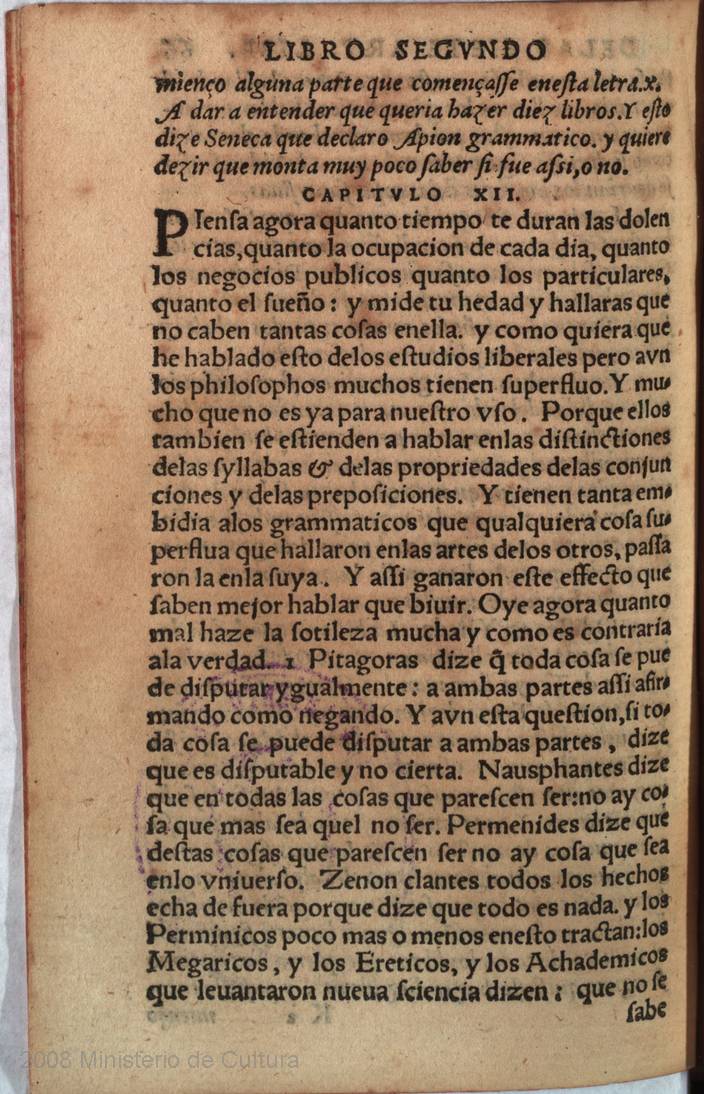 LIBRO SEGVNDO
mienço alguna parte que començaſſe eneſta letra.x.
A dar a entender que queria hazer diez libros.Y eſto
dize Seneca que declaro Apion grammatico. y quiere
dezir que monta muy poco ſaber ſi fue aſsi,o no.
CAPITVLO XII.
PIenſa agora quanto tiempo te duran las dolen
cias,quanto la ocupacion de cada dia, quanto
los negocios publicos quanto los particulares,
quanto el ſueño: y mide tu hedad y hallaras que
no caben tantas coſas enella. y como quiera que
he hablado eſto delos eſtudios liberales pero avn
los philoſophos muchos tienen ſuperfluo.Y mu-
cho que no es ya para nueſtro vſo. Porque ellos
tambien ſe eſtienden a hablar enlas diſtinctiones
delas ſyllabas & delas propriedades delas conjun
ciones y delas prepoſiciones. Y tienen tanta em-
bidia alos grammaticos que qualquiera coſa ſu-
perflua que hallaron enlas artes delos otros, paſſa
ron la enla ſuya. Y aſſi ganaron eſte effecto que
ſaben mejor hablar que biuir. Oye agora quanto
mal haze la ſotileza mucha y como es contraria
ala verdad. 1 Pitagoras dize q̃ toda coſa ſe pue
de diſputar ygualmente: a ambas partes aſſi afir-
mando como negando. Y avn eſta queſtion,ſi to-
da coſa ſe puede diſputar a ambas partes, dize
que es diſputable y no cierta. Nausphantes dize
que en todas las coſas que pareſcen ſer:no ay co-
ſa que mas ſea quel no ſer. Permenides dize que
deſtas coſas que pareſcen ſer no ay coſa que ſea
enlo vniuerſo. Zenon clantes todos los hechos
echa de fuera porque dize que todo es nada. y los
Perminicos poco mas o menos eneſto tractan:los
Megaricos, y los Ereticos, y los Achademicos
que leuantaron nueua ſciencia dizen: que no ſe
ſabe
2008 Ministerio de Cultura